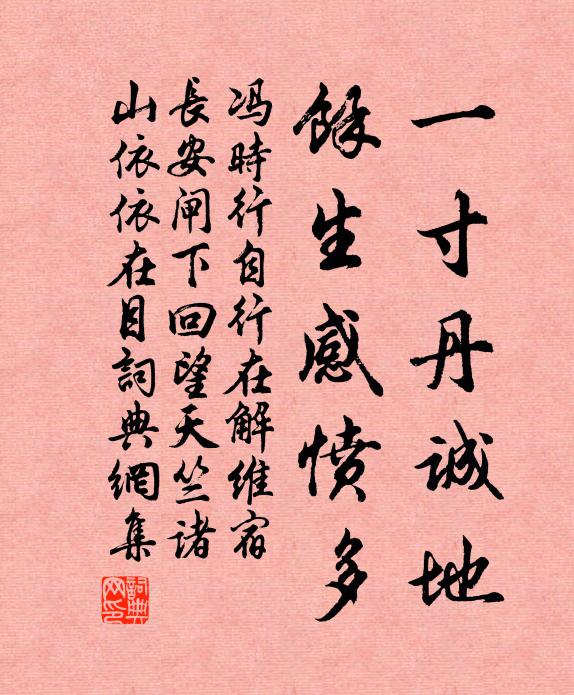 一寸丹誠地
餘生感憤多
冯時行自行在解維宿
長安闸下回望天竺諸
山依依在目詞典網集
詞典网印